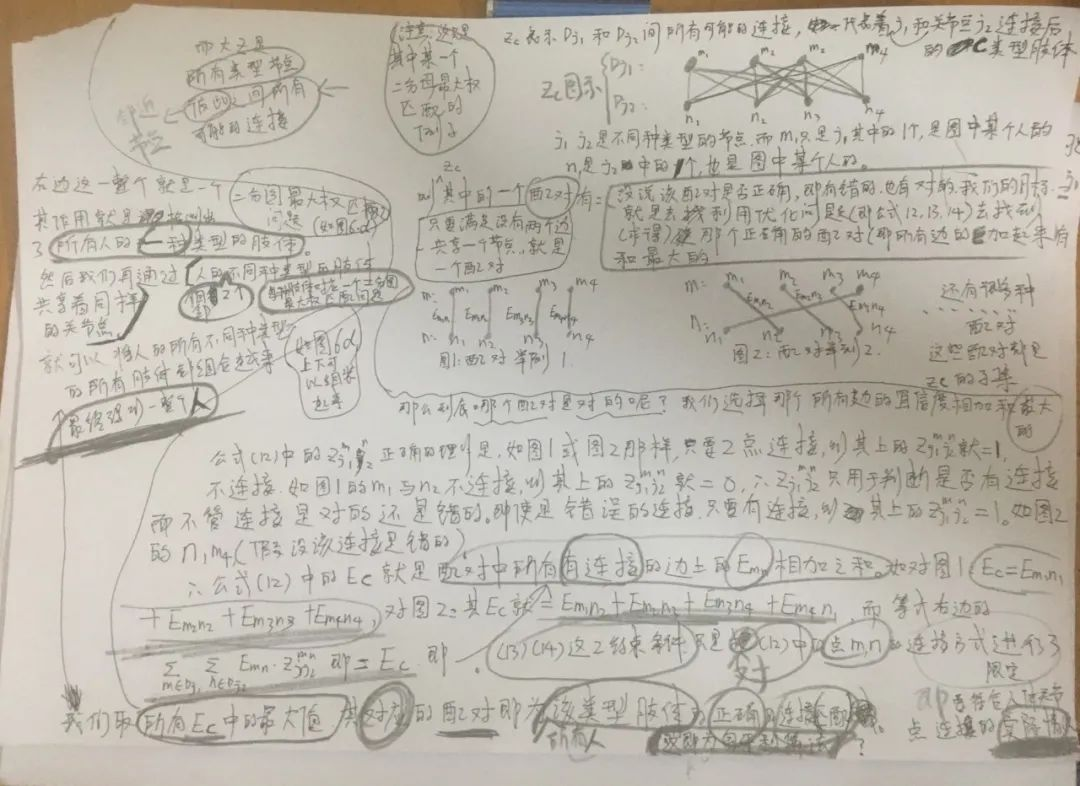 而大Z是
所有类型节点
间所有
可能的连接
邻近
节点
(注意,这就是
其中某一个
二分图最大权
匹配的
例子
Zc表示Dj1和Dj2间所有可能的连接,代表着j1和关节点j2连接后
的C类型肢体
Zc图示
Dj1:
Dj2:
m1 m2 m3 m4
n1 n2 n3 n4
j1 j2是不同种类型的节点.而m1只是j1其中的1个,是图中某个人的
n1是j2中的1个,也是图中某个人的。
右边这一整个就是一个
二分图最大权匹配
问题
(如图6d)
其作用就是
了所有人的一种类型的肢体。
然后我们再通过
人的不同种类型的肢体
2个
每种肢体对应一个二分图
最大权匹配问题
共享着同样
的关节点,
就可以将人的所有不同种类型
的所有肢体都组合起来
最终得到一整个人
如图6d
上大可
以组装
起来
Zc
其中的一个配对
只要满足没有两个边
共享一个节点,就是
一个配对
没说该配对是否正确,即有错的,也有对的.我们的目标
就是去找利用优化问题(即公式12,13,14)去找到
(求得)那个正确的配对(即所有边的加起来有
和最大的
m: m1 m2 m3 m4
Em1n1 Em2n2 Em3n3 Em4n4
n: n1 n2 n3 n4
图1:配对举例1.
m: m1 m2 m3 m4
Em1n2 Em2n3 Em3n4
n: n1 n2 n3 n4
图2:配对举例2.
还有很多种
......
配对
这些配对都是
Zc的子集
那么到底哪个配对是对的呢?我们选择那个所有边的置信度相加和最大
的
公式(12)中的Zj1j2mn正确的理解是,如图1或图2那样,只要2点连接,则其上的Zj1j2mn就=1,
不连接.如图1的m1与n2不连接,则其上的Zj1j2mn就=0,∴Zj1j2mn只用于判断是否有连接
而不管连接是对的还是错的。即使是错误的连接,只要有连接,则其上的Zj1j2mn=1。如图2
的n1m4(假设该连接是错的)
∴公式(12)中的Ec就是配对中所有有连接的边上的Emn相加之和。如对图1:Ec=Em1n1
+Em2n2+Em3n3+Em4n4,对图2:其Ec就=Em1n2+Em2n3+Em3n4+Em4n1,而等式右边的
∑m∈Dj1 ∑n∈Dj2 Emn·Zj1j2mn即=Ec.即
(13)(14)这2约束条件只是对(12)中的点m,n的连接方式进行了
限定
我们取所有Ec中的最大值,其对应的配对即为该类型肢体的正确的连接
所有人
是否符合人体关节
点连接的实际情况
?